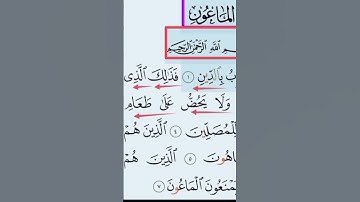 الْمَاعُونِ
مِ اللَّهِ الرَّحْمَٰنِ الرَّحِيمِ
بُ بِالدِّينِ ۝١ فَذَٰلِكَ الَّذِي
وَلَا يَحُضُّ عَلَىٰ طَعَامِ
لِّلْمُصَلِّينَ ۝٤ الَّذِينَ هُمْ
اهُونَ ۝٥ الَّذِينَ هُمْ
مْنَعُونَ الْمَاعُونَ ۝٧